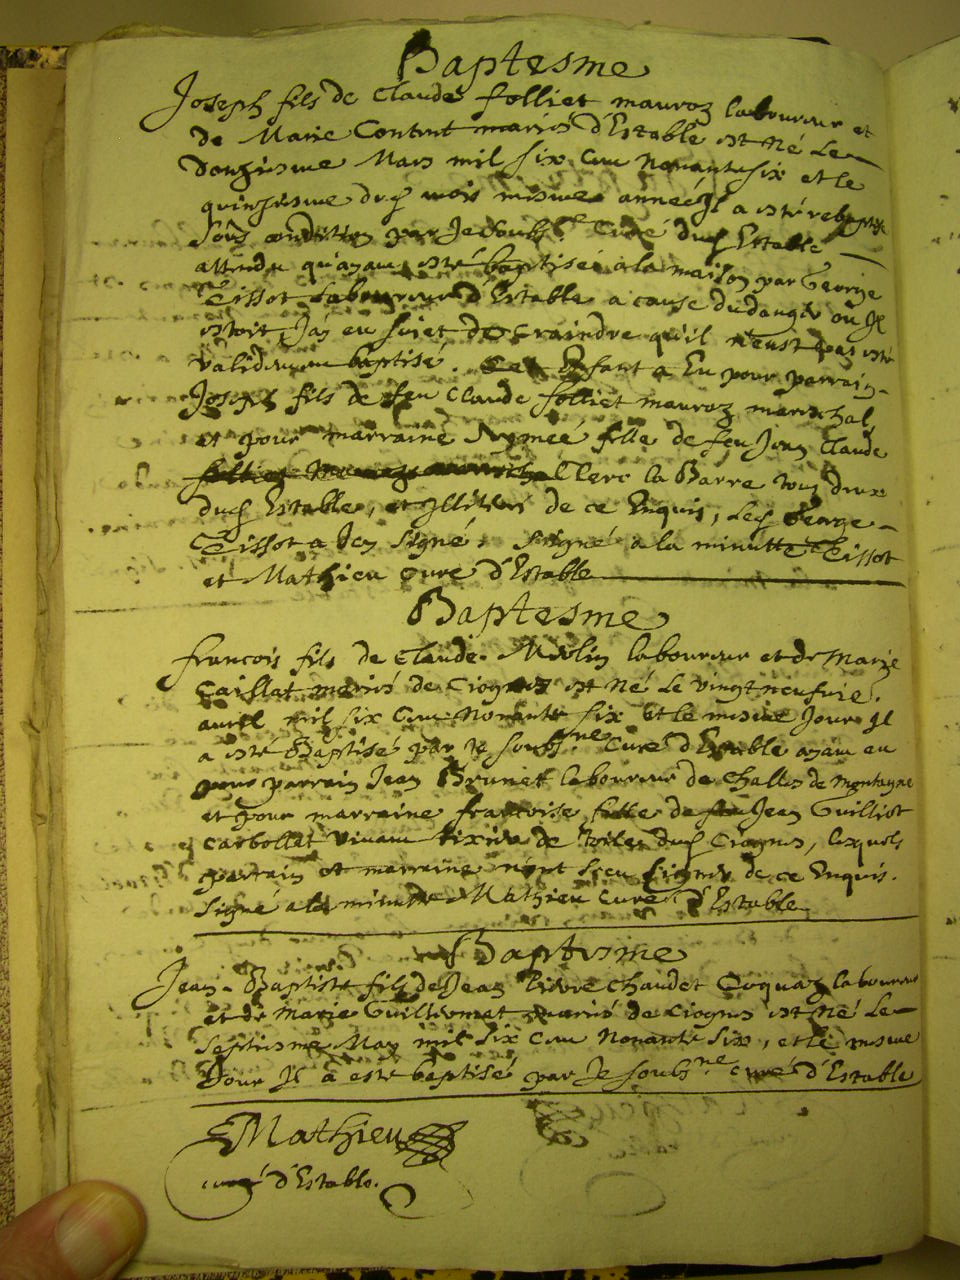 Baptesme
Joseph fils de Claude folliet mauroz laboureur et
de Marie Contat mariés d'Estable est né le
douziesme Mars mil six cen nonante six et le
quinziesme dud mois mesme année Il a esté rebaptisé
sous condition par Je soubs.né Curé dud Estable
attendu qu'ayam esté baptisé a la maison par George
Tissot Laboureur d'Estable a cause du danger ou Il
estoit, J'ay eu sujet de craindre qu'il n'eust pas esté
validemen baptisé. Cet Enfant a Eu pour parrain
Joseph fils de feu Claude folliet mauroz mareschal
et pour marraine Aymeé fille de feu Jean Claude
Clerc la Barre tous deux
dud Estable, et Illiteré de ce Enquis, Led George
Tissot a Icy signé. Signé a la minutte Tissot
et Mathieu curé d'Estable
Baptesme
francois fils de Claude Molin laboureur et de Marie
Caillat mariés de Ciognes est né le vingtneufvie.
auril mil six cen nonante six et le mesme Jour Il
a esté Baptisé par Je soubs.né Curé d'Estable ayam eu
pour parrain Jean Brunet laboureur de Challes de montagne
et pour marraine francoise fille de Jean Guilliot
Carbollat vivam tixier de toiles dud Ciognes, lesquels
parrain et marraine n'ont sceu signer de ce Enquis.
Signé a la minutte Mathieu Curé d'Estable
Baptesme
Jean-Baptiste fils de Jean Pierre Chaudet Coquaz laboureur
et de Marie Guillermet mariés de Ciognes est né le
septiesme May mil six cen nonante six, et le mesme
Jour Il a esté baptisé par Je soubs.né curé d'Estable
Mathieu
curé d'Estable.